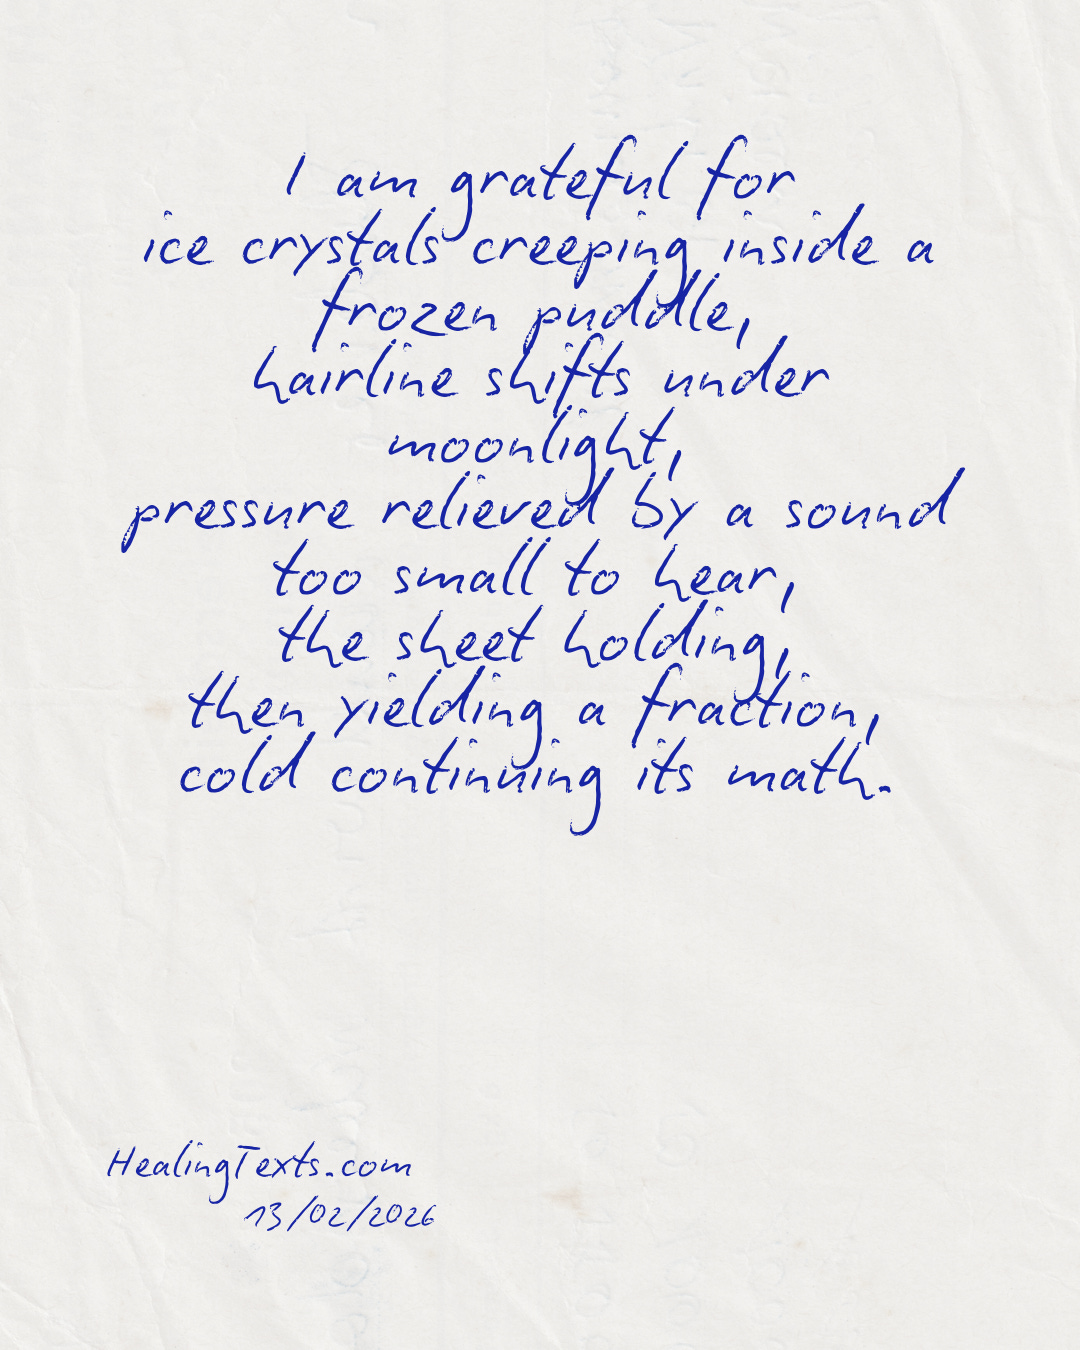 I am grateful for
ice crystals creeping inside a
frozen puddle,
hairline shifts under
moonlight,
pressure relieved by a sound
too small to hear,
the sheet holding,
then yielding a fraction,
cold continuing its math.
HealingTexts.com
13/02/2026